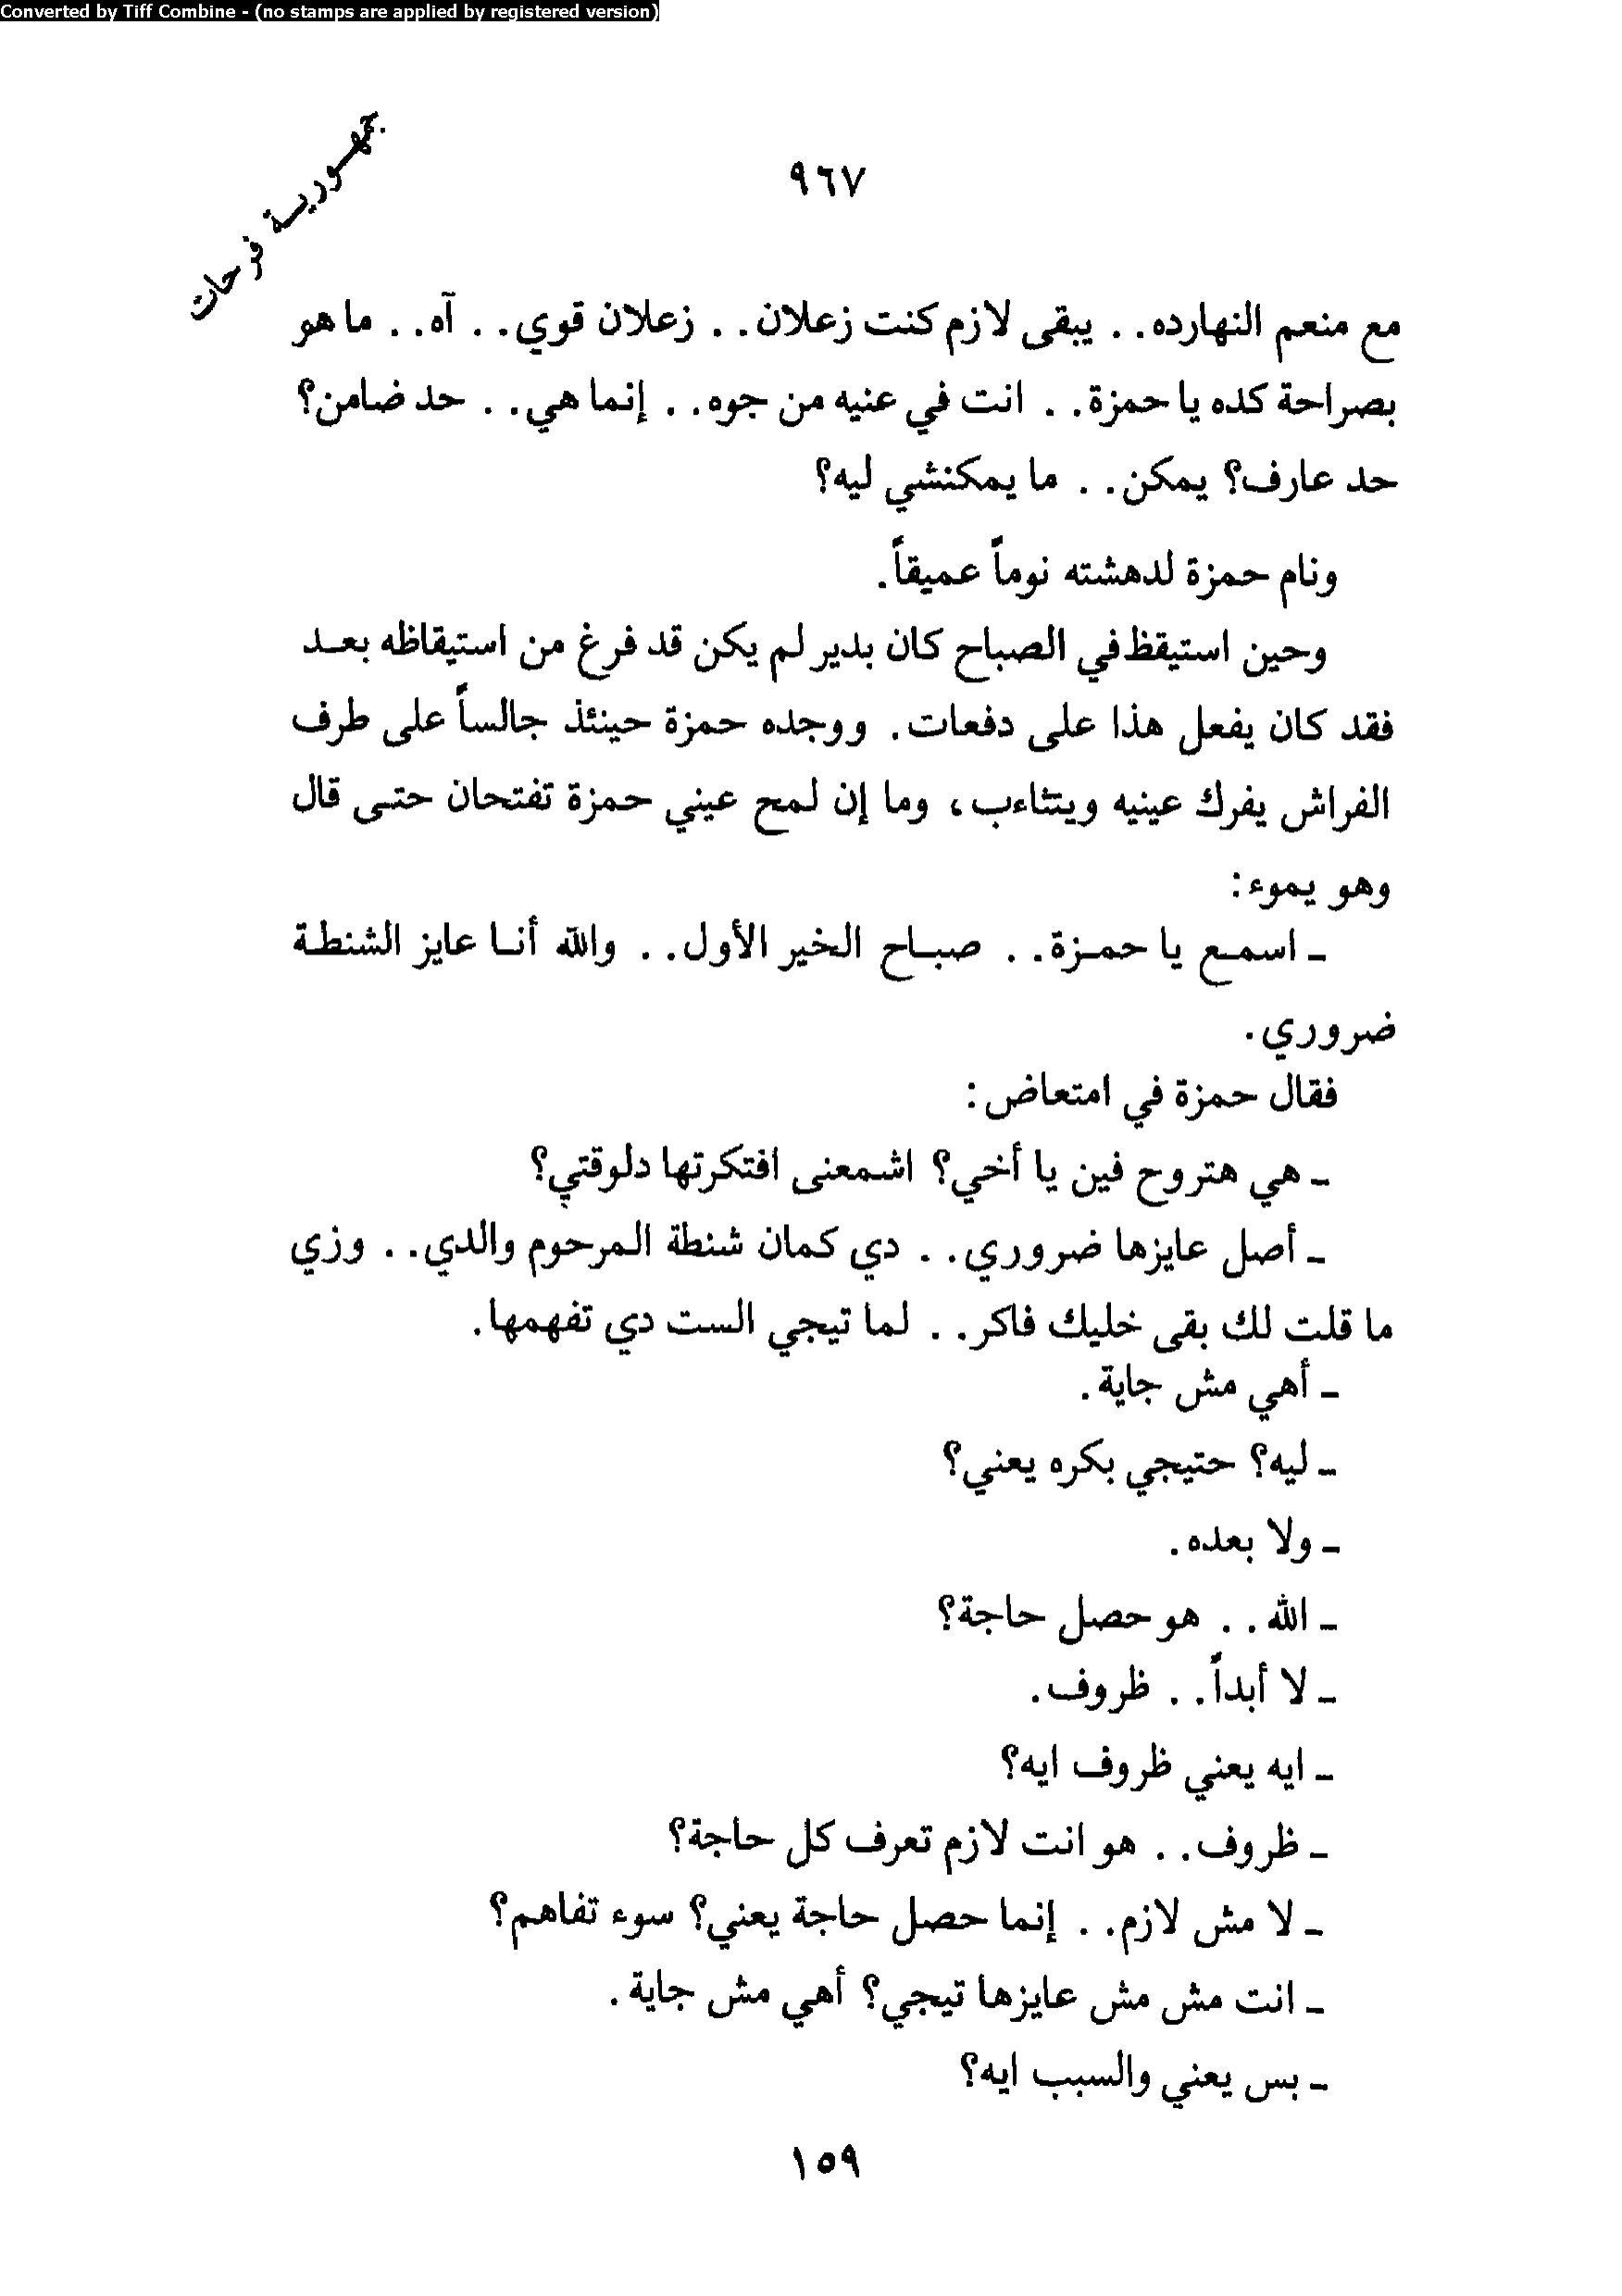 Converted by Tiff Combine - (no stamps are applied by registered version)
جمهورية فرحات
٩٦٧
مع منعم النهارده.. يبقى لازم كنت زعلان.. زعلان قوي.. آه.. ما هو
بصراحة كده يا حمزة.. انت في عنيه من جوه.. إنما هي.. حد ضامن؟
حد عارف؟ يمكن.. ما يمكنشي ليه؟
ونام حمزة لدهشته نوماً عميقاً.
وحين استيقظ في الصباح كان بدير لم يكن قد فرغ من استيقاظه بعد
فقد كان يفعل هذا على دفعات. ووجده حمزة حينئذ جالساً على طرف
الفراش يفرك عينيه ويتثاءب، وما إن لمح عيني حمزة تفتحان حتى قال
وهو يموء:
ـ اسمع يا حمزة.. صباح الخير الأول.. والله أنا عايز الشنطة
ضروري.
فقال حمزة في امتعاض:
ـ هي هتروح فين يا أخي؟ اشمعنى افتكرتها دلوقتي؟
ـ أصل عايزها ضروري.. دي كمان شنطة المرحوم والدي.. وزي
ما قلت لك بقى خليك فاكر.. لما تيجي الست دي تفهمها.
ـ أهي مش جاية.
ـ ليه؟ حتيجي بكره يعني؟
ـ ولا بعده.
ـ الله.. هو حصل حاجة؟
ـ لا أبداً.. ظروف.
ـ ايه يعني ظروف ايه؟
ـ ظروف.. هو انت لازم تعرف كل حاجة؟
ـ لا مش لازم.. إنما حصل حاجة يعني؟ سوء تفاهم؟
ـ انت مش مش عايزها تيجي؟ أهي مش جاية.
ـ بس يعني والسبب ايه؟
١٥٩